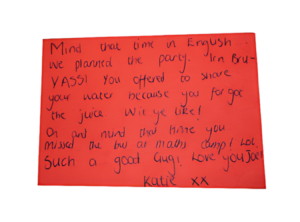 Mind that time in English
we planned the party. Ten Bru-
YASS! You offered to share
your water because you forgot
the juice. Wit ye like!
Oh and mind that time you
missed the bus at maths comp! Lol.
Such a good Guy! Love you Joe!
Katie xx